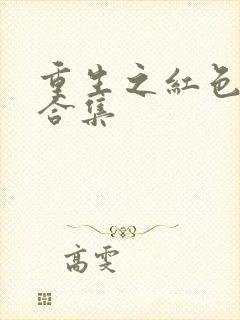 重生之红色
合集
高雯